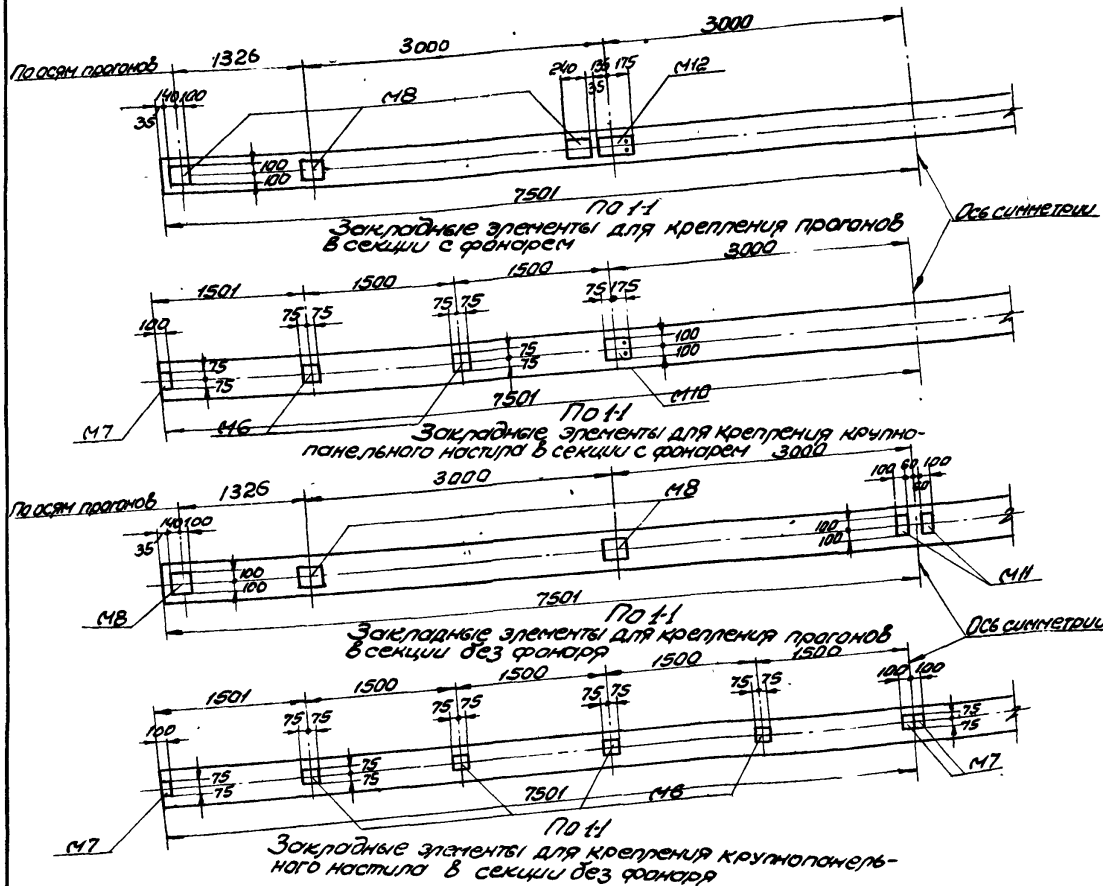 По осям прогонов
1326
3000
3000
140
100
35
240
135
35
175
М8
М12
100
100
7501
По 1-1
Закладные элементы для крепления прогонов
в секции с фонарем
Ось симметрии
1501
1500
1500
3000
100
75 75
75 75
75 175
75
75
75
75
100
100
7501
М7
М6
М10
По 1-1
Закладные элементы для крепления крупно-
панельного настила в секции с фонарем
По осям прогонов
1326
3000
3000
140 100
35
100 60 100
60
М8
100
100
100
100
М8
М11
7501
По 1-1
Закладные элементы для крепления прогонов
в секции без фонаря
Ось симметрии
1501
1500
1500
1500
1500
100
75 75
75 75
75 75
75 75
100 100
75
75
75
75
75
75
7501
М6
М7
М7
По 1-1
Закладные элементы для крепления крупнопанель-
ного настила в секции без фонаря